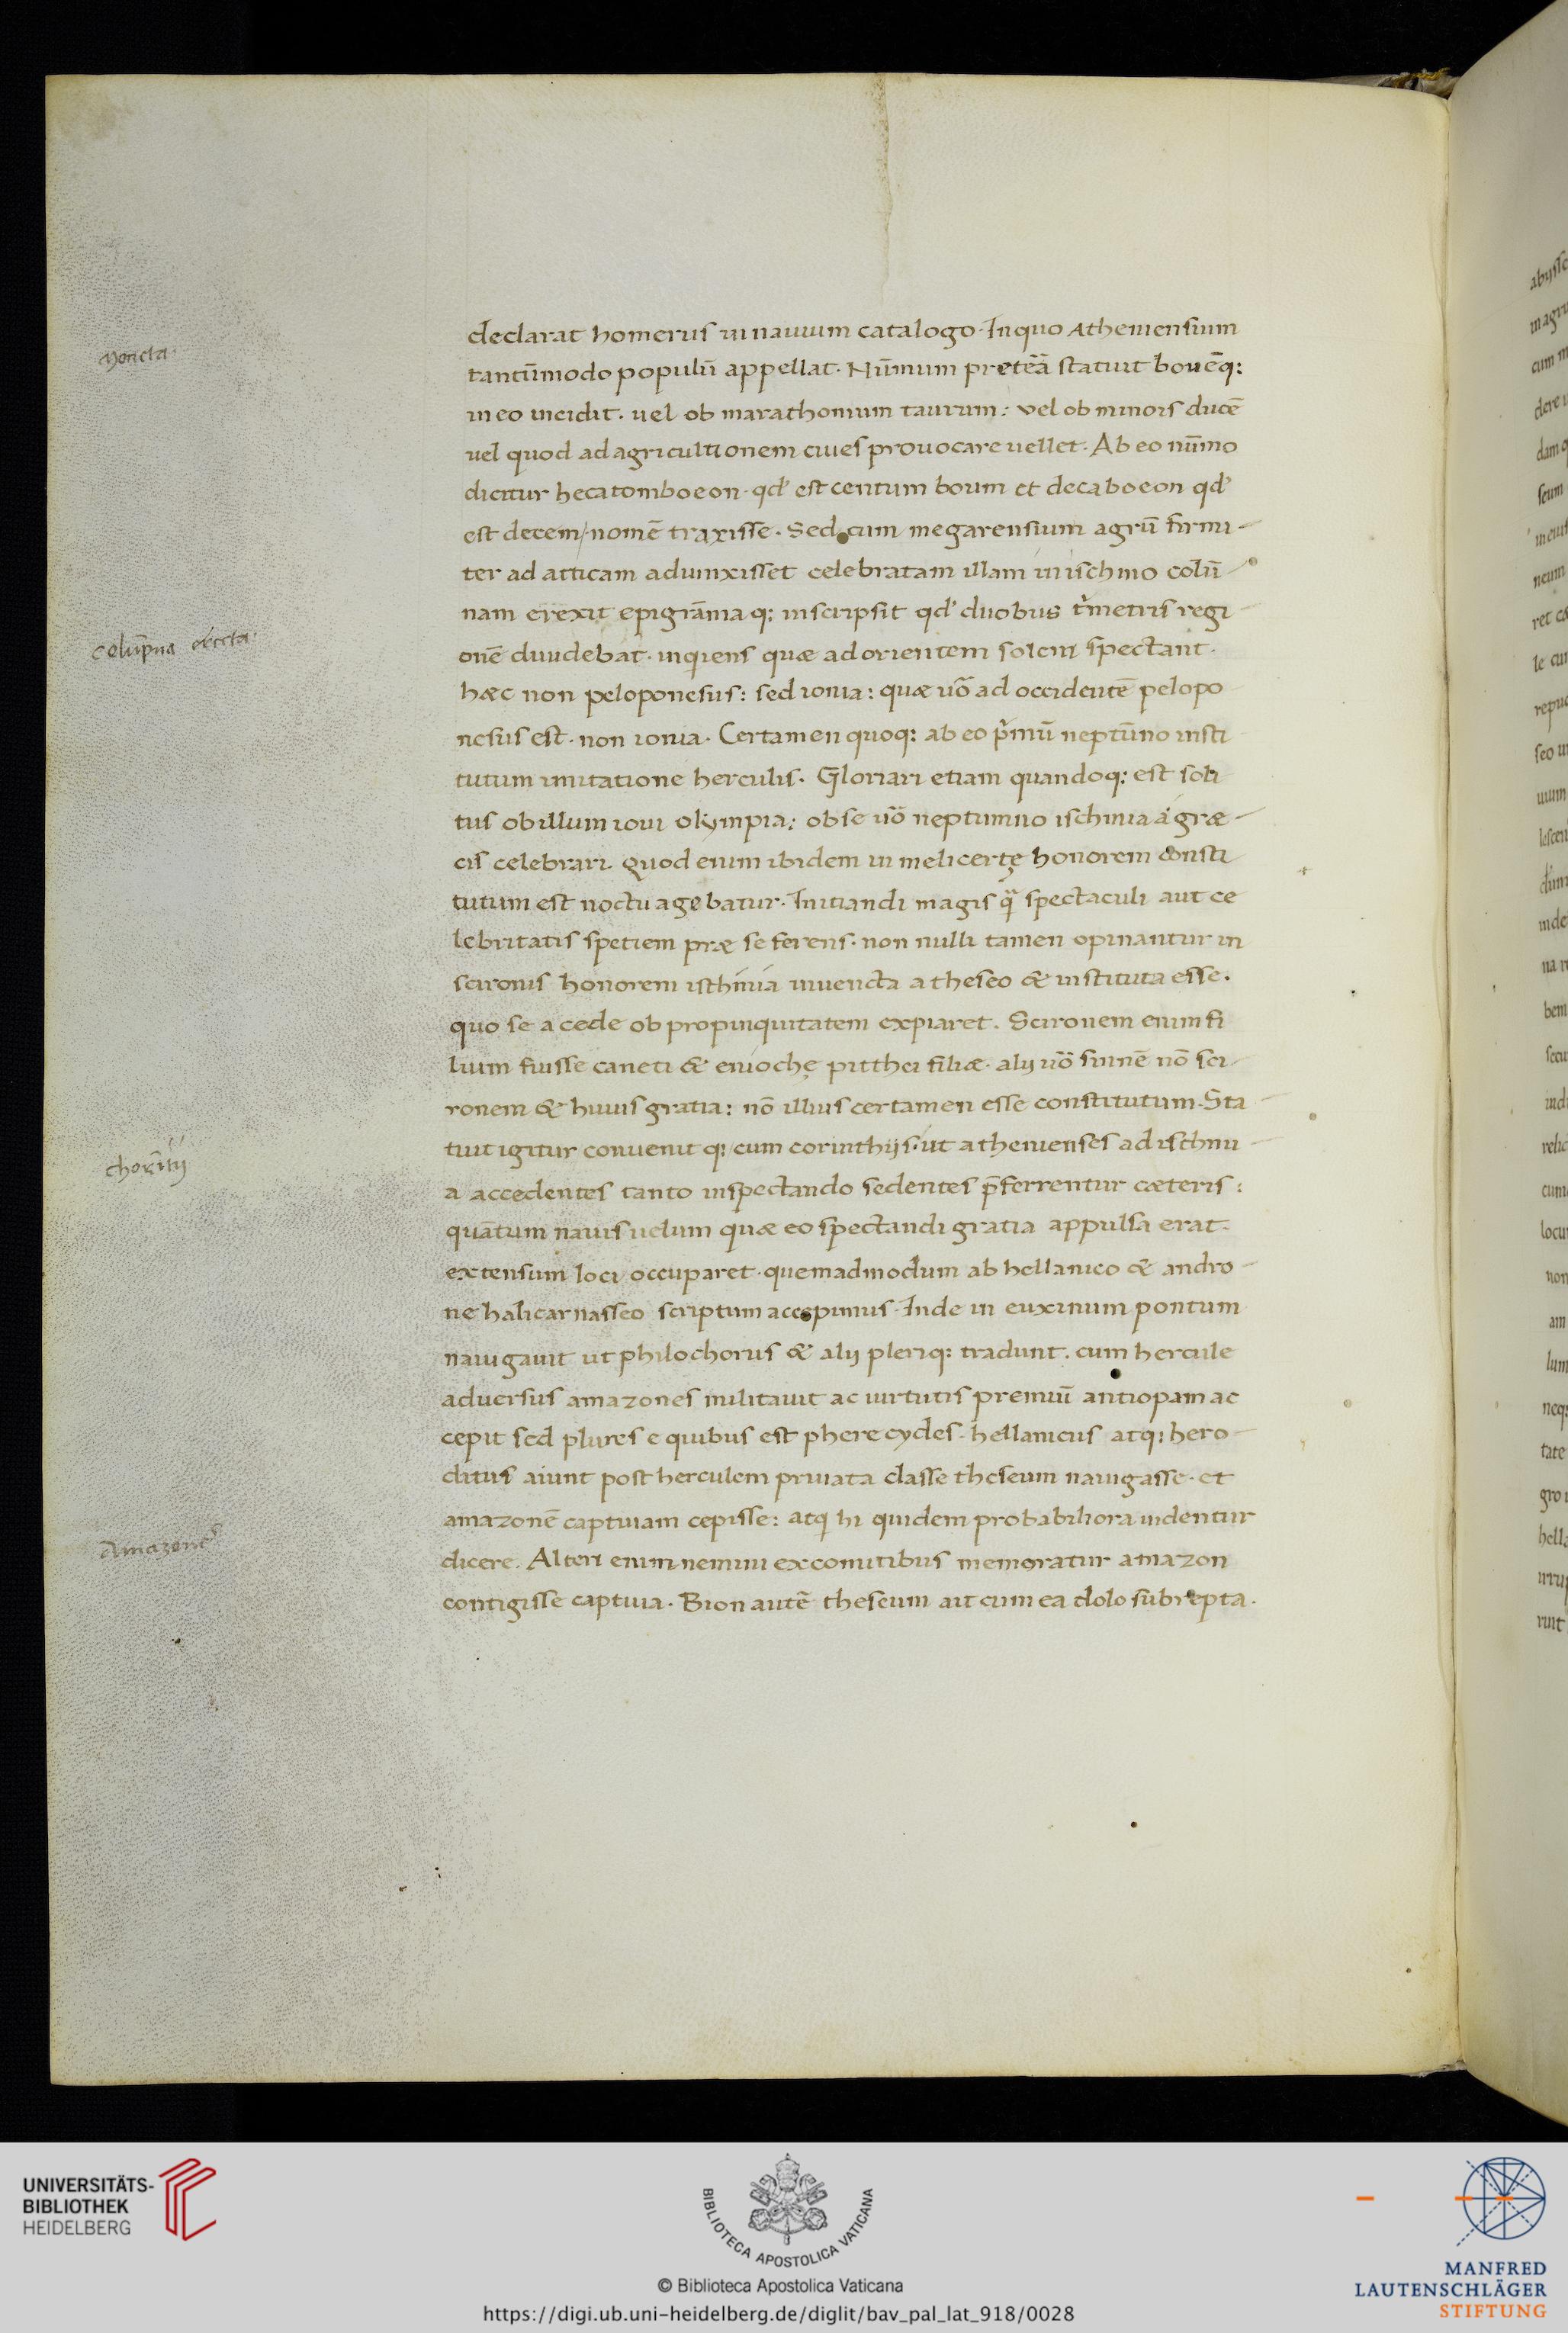 declarat homerus in nauium catalogo. In quo Atheniensium
tantūmodo populū appellat. Nūmum pretēā statuit bouēq:
in eo incidit. uel ob marathonium taurum: vel ob minois ducē
uel quod ad agricultionem ciues prouocare uellet. Ab eo nūmo
dicitur hecatomboeon. qd' est centum boum et decaboeon qd'
est decem / nomē traxisse. Sed cum megarensium agrū firmi-
ter ad atticam adiunxisset celebratam illam in ischmo colū-
nam erexit epigrāma q: inscripsit qd' duobus t'metris regi-
onē diuidebat. inqiens quæ ad orientem solem spectant.
hæc non peloponesus: sed ionia: quæ uō ad occidentē pelopo
nesus est. non ionia. Certamen quoq: ab eo p'mū neptūno insti
tutum imitatione herculis. Gloriari etiam quandoq: est soli
tus ob illum ioui olympia: ob se uō neptunno ischmia a græ-
cis celebrari. Quod enim ibidem in melicertę honorem consti
tutum est noctu agebatur. Initiandi magis q̄ spectaculi aut ce
lebritatis spetiem præ se ferens. non nulli tamen opinantur in
scironis honorem isthmia inuencta a theseo & instituta esse.
quo se a cede ob propinquitatem expiaret. Scironem enim fi
lium fuisse caneti & eniochę pitthei filiæ. alij uō sinnē nō sci-
ronem & huius gratia: nō illius certamen esse constitutum. Sta-
tuit igitur conuenit q: cum corinthijs. ut athenienses ad ischmi-
a accedentes tanto inspectando sedentes p̄ferrentur cæteris:
quātum nauis uelum quæ eo spectandi gratia appulsa erat.
extensum loci occuparet. quemadmodum ab hellanico & andro-
ne halicarnasseo scriptum accepimus. Inde in euxinum pontum
nauigauit ut philochorus & alij pleriq: tradunt. cum hercule
aduersus amazones militauit ac uirtutis premiū antiopam ac
cepit sed plures e quibus est pherecydes. hellanicus atq: hero-
ditus aiunt post herculem priuata classe theseum nauigasse. et
amazonē captiuam cepisse: atq hi quidem probabiliora uidentur
dicere. Alteri enim nemini ex comitibus memoratur amazon
contigisse captiua. Bion autē theseum ait cum ea dolo subrepta.
Moneta.
Colūpna erecta.
chorītij
Amazones
UNIVERSITÄTS-
BIBLIOTHEK
HEIDELBERG
BIBLIOTECA APOSTOLICA VATICANA
© Biblioteca Apostolica Vaticana
https://digi.ub.uni-heidelberg.de/diglit/bav_pal_lat_918/0028
MANFRED
LAUTENSCHLÄGER
STIFTUNG